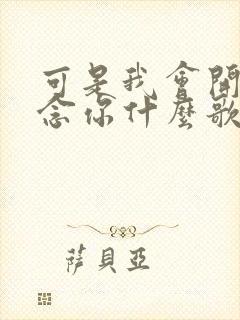 可是我會開
念你什麼歌
薩貝亞